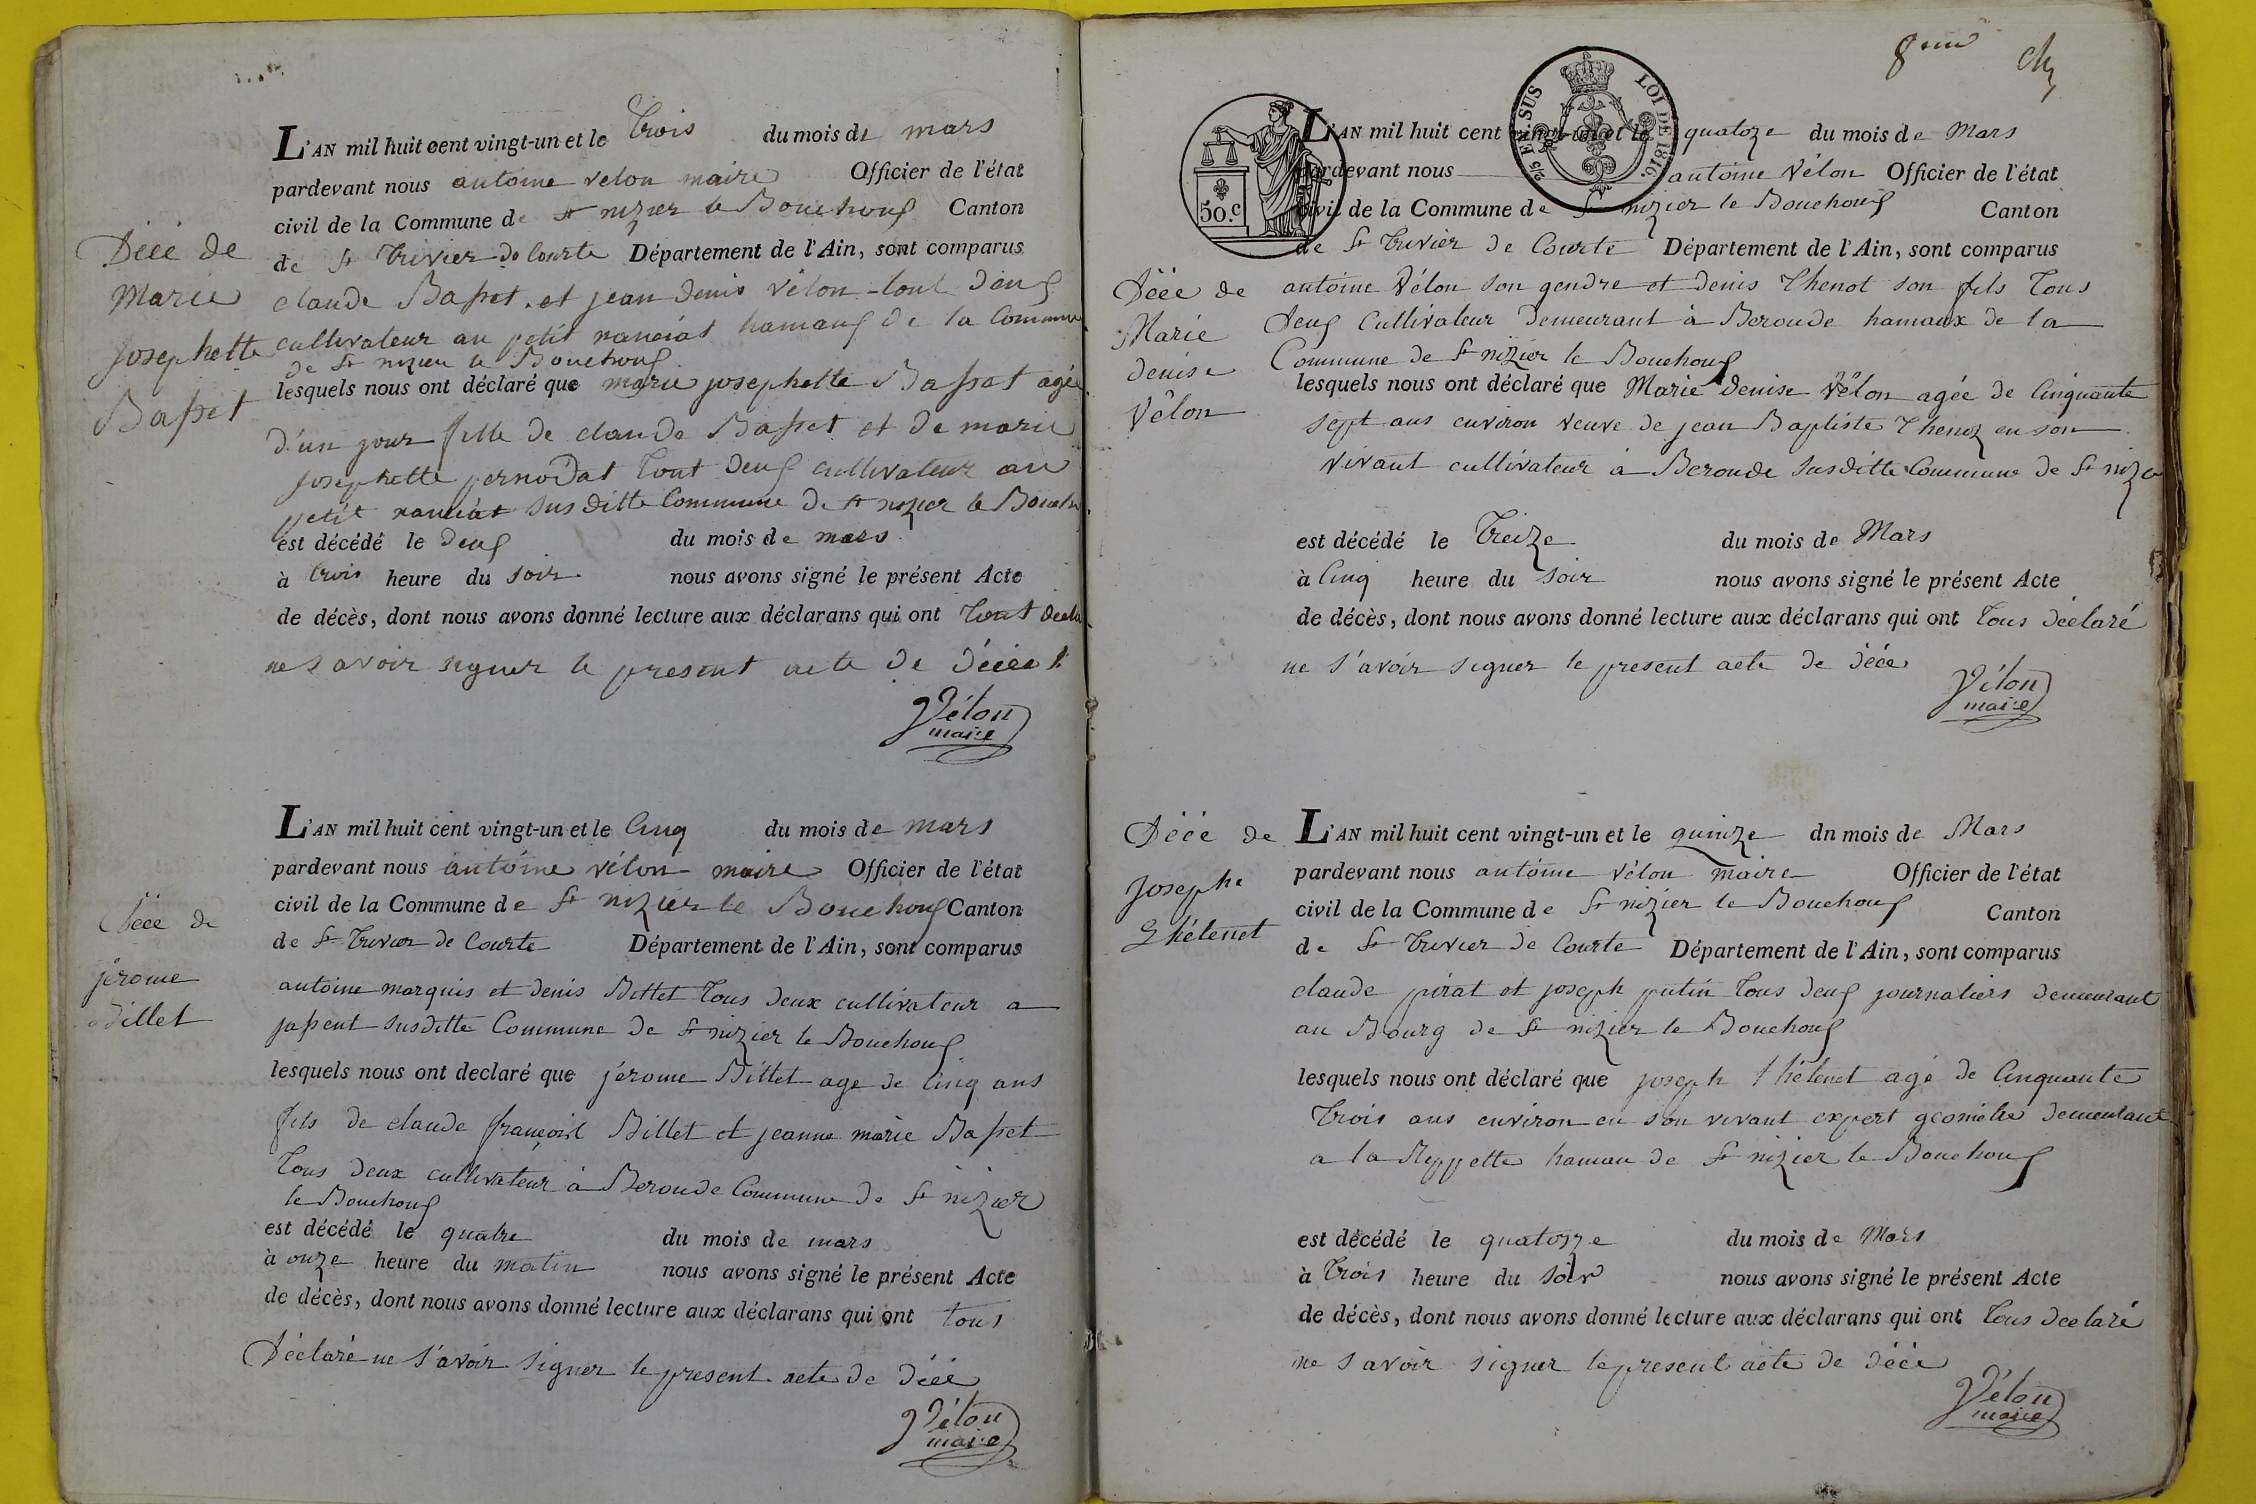 L'AN mil huit cent vingt-un et le Trois du mois de mars
pardevant nous antoine vélon maire Officier de l'état
civil de la Commune de St nizier le Bouchoux Canton
de St Trivier de Courte Département de l'Ain, sont comparus
Décé de
Marie
Josephette
Basset
claude Basset et jean denis vélon tout deux
cultivateur au petit nanciat hamaux de la Commune
de St nizier le Bouchoux
lesquels nous ont déclaré que marie josephette Basset agée
d'un jour fille de claude Basset et de marie
josephette pernodat tout deux cultivateur au
petit nanciat susditte Commune de St nizier le Bouchou
est décédé le deux du mois de mars
à trois heure du soir nous avons signé le présent Acte
de décès, dont nous avons donné lecture aux déclarans qui ont tout
ne savoir signer le present acte de
Vélon
maire
L'AN mil huit cent vingt-un et le Cinq du mois de mars
pardevant nous antoine vélon maire Officier de l'état
civil de la Commune de St nizier le Bouchoux Canton
de St Trivier de Courte Département de l'Ain, sont comparus
Décé de
jérome
Billet
antoine marquis et denis Billet tous deux cultivateur a
jassent susditte Commune de St nizier le Bouchoux
lesquels nous ont declaré que jérome Billet age de Cinq ans
fils de claude françois Billet et jeanne marie Basset
tous deux cultivateur à Beroude Commune de St nizier
le Bouchoux
est décédé le quatre du mois de mars
à onze heure du matin nous avons signé le présent Acte
de décès, dont nous avons donné lecture aux déclarans qui ont tous
Déclaré ne s'avoir signer le present acte de décé
Vélon
maire
8eme
50.c
25 EN SUS LOI DE 1816.
L'AN mil huit cent vingt-un et le quatoze du mois de Mars
pardevant nous antoine Vélon Officier de l'état
civil de la Commune de St nizier le Bouchoux Canton
de St Trivier de Courte Département de l'Ain, sont comparus
Décé de
Marie
denise
Vélon
antoine Vélon son gendre et denis Thenot son fils tous
deux Cultivateur demeurant à Beroude hamaux de la
Commune de St nizier le Bouchoux
lesquels nous ont déclaré que Marie denise Vélon agée de Cinquante
sept ans environ veuve de jean Baptiste Thenoz en son
vivant cultivateur à Beroude susditte Commune de St nizier
est décédé le Treize du mois de Mars
à Cinq heure du soir nous avons signé le présent Acte
de décès, dont nous avons donné lecture aux déclarans qui ont tous déclaré
ne s'avoir signer le present acte de décé
Vélon
maire
Décé de
Josephe
Thélenet
L'AN mil huit cent vingt-un et le quinze dn mois de Mars
pardevant nous antoine Vélon maire Officier de l'état
civil de la Commune de St nizier le Bouchoux Canton
de St Trivier de Courte Département de l'Ain, sont comparus
claude pirat et joseph putin tous deux journaliers demeurant
au Bourg de St nizier le Bouchoux
lesquels nous ont déclaré que joseph thélenet agé de Cinquante
trois ans environ en son vivant expert géomètre demeurant
a la hamau de St nizier le Bouchoux
est décédé le quatozze du mois de Mars
à Trois heure du soir nous avons signé le présent Acte
de décès, dont nous avons donné lecture aux déclarans qui ont tous declaré
ne savoir signer le present acte de décé
Vélon
maire